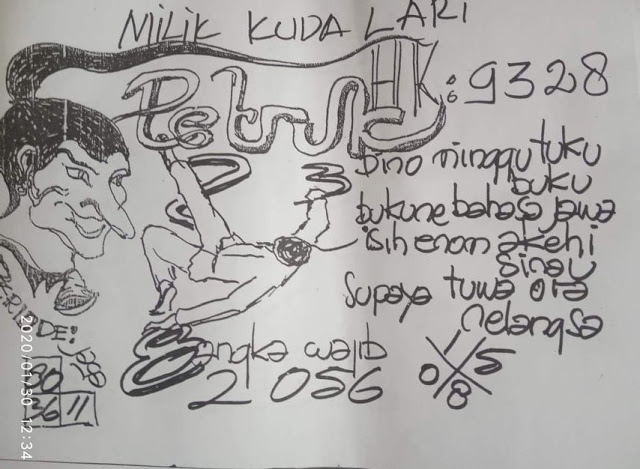 MILIK KUDA LARI
HK: 9328
Dino minggu tuku
buku
bukune bahasa jawa
isih enom akehi
sinau
Supaya tuwa ora
nelangsa
3
8
angka wajib
2056
1 5
0 8
36 11
2020/01/30 12:34